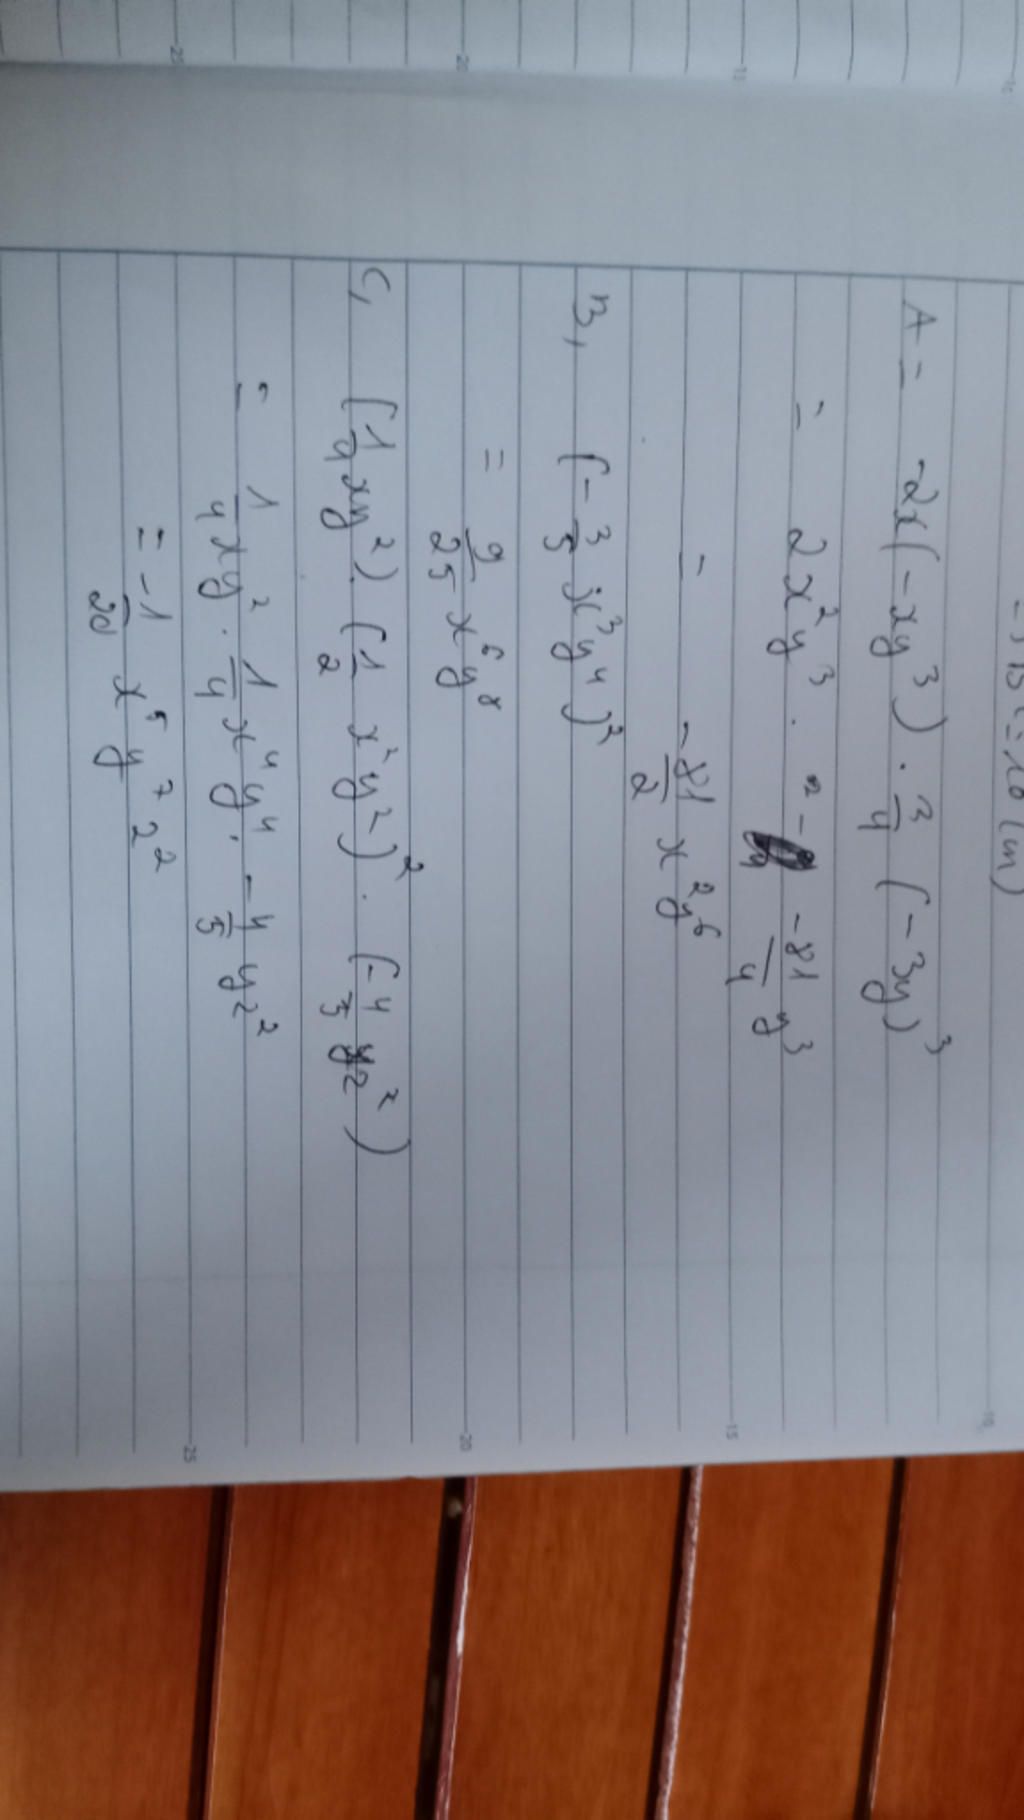 A = -2x(-xy³) . 3/4 (-3y)³
= 2x²y³ . -81/4 y³
= -81/2 x²y⁶
B, (-3/5 x³y⁴)²
= 9/25 x⁶y⁸
C, (1/4 xy²) (1/2 x²y²)² . (-4/5 yz²)
= 1/4 xy² . 1/4 x⁴y⁴ . -4/5 yz²
= -1/20 x⁵y⁷z²